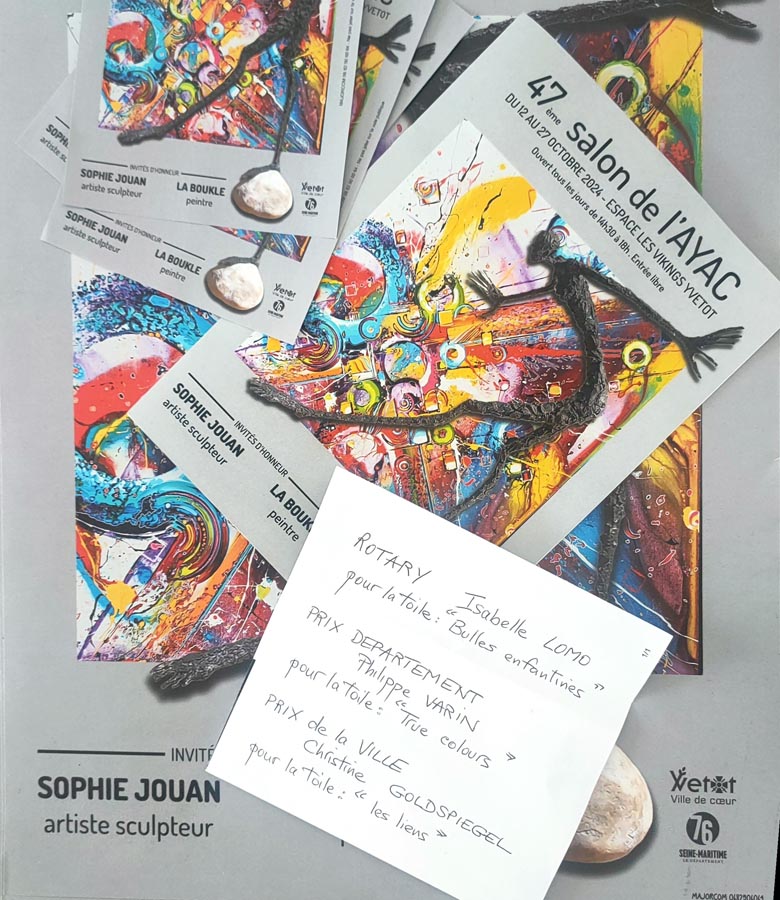 YVETOT
INVITÉS D'HONNEUR
SOPHIE JOUAN
artiste sculpteur
LA BOUKLE
peintre
Yvetot
76
SEINE-MARITIME
INVITÉS D'HONNEUR
SOPHIE JOUAN
artiste sculpteur
LA BOUKLE
peintre
Yvetot
76
47ème salon de l'AYAC
DU 12 AU 27 OCTOBRE 2024 - ESPACE LES VIKINGS YVETOT
Ouvert tous les jours de 14h30 à 18h. Entrée libre
INVITÉS D'HONNEUR
SOPHIE JOUAN
artiste sculpteur
LA BOUKL
peintre
ROTARY Isabelle LOMO
pour la toile : " Bulles enfantines "
PRIX DEPARTEMENT
Philippe VARIN
pour la toile : " True colours "
PRIX de la VILLE
Christine GOLDSPIEGEL
pour la toile : " les liens "
INVITÉ
SOPHIE JOUAN
artiste sculpteur
Yvetot
Ville de cœur
76
SEINE-MARITIME
LE DÉPARTEMENT